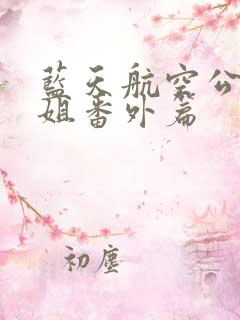 藍天航空公
姐番外篇
初塵